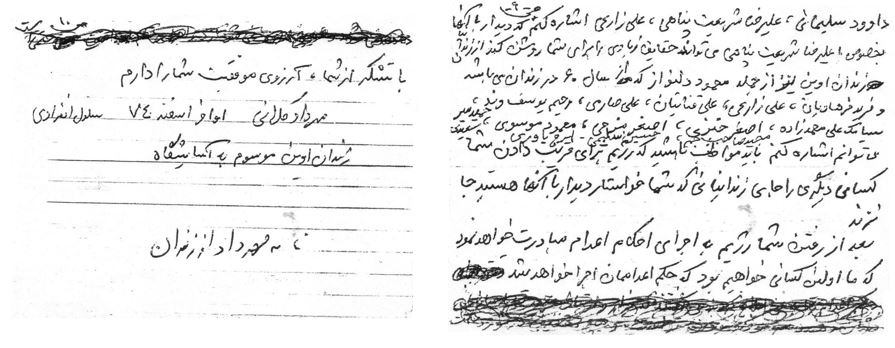 ص-۹-
داوود سلیمانی، علیرضا شریعت پناهی، علی زارعی اشاره کنم که دیدار با آنها
بخصوص با علیرضا شریعت پناهی می تواند حقایق زیادی را برای شما روشن کند از
زندان اوین نیز از جمله محمود دلنواز که از سال ۶۰ در زندان می باشد
و فرید علی زارعی، علی علی صابری، رحیم یوسف وند،
سیامک علی محمدزاده، اصغر اصغر موسوی،
می توانم اشاره کنم باید مواظب باشید که رژیم برای فریب دادن شما
کسانی دیگری را جای زندانیانی که شما خواستار دیدار با آنها هستید جا
نزند
بعد از رفتن شما رژیم به اجرای احکام اعدام مبادرت خواهد نمود
که ما اولین کسانی خواهیم بود که حکم اعداممان اجرا خواهد شد
ص-۱۰-
با تشکر از شما، آرزوی موفقیت شما را دارم
مهرداد کلانی اواخر اسفند ۷۴ سلول انفرادی
زندان اوین موسوم به آسایشگاه
مهرداد از زندان